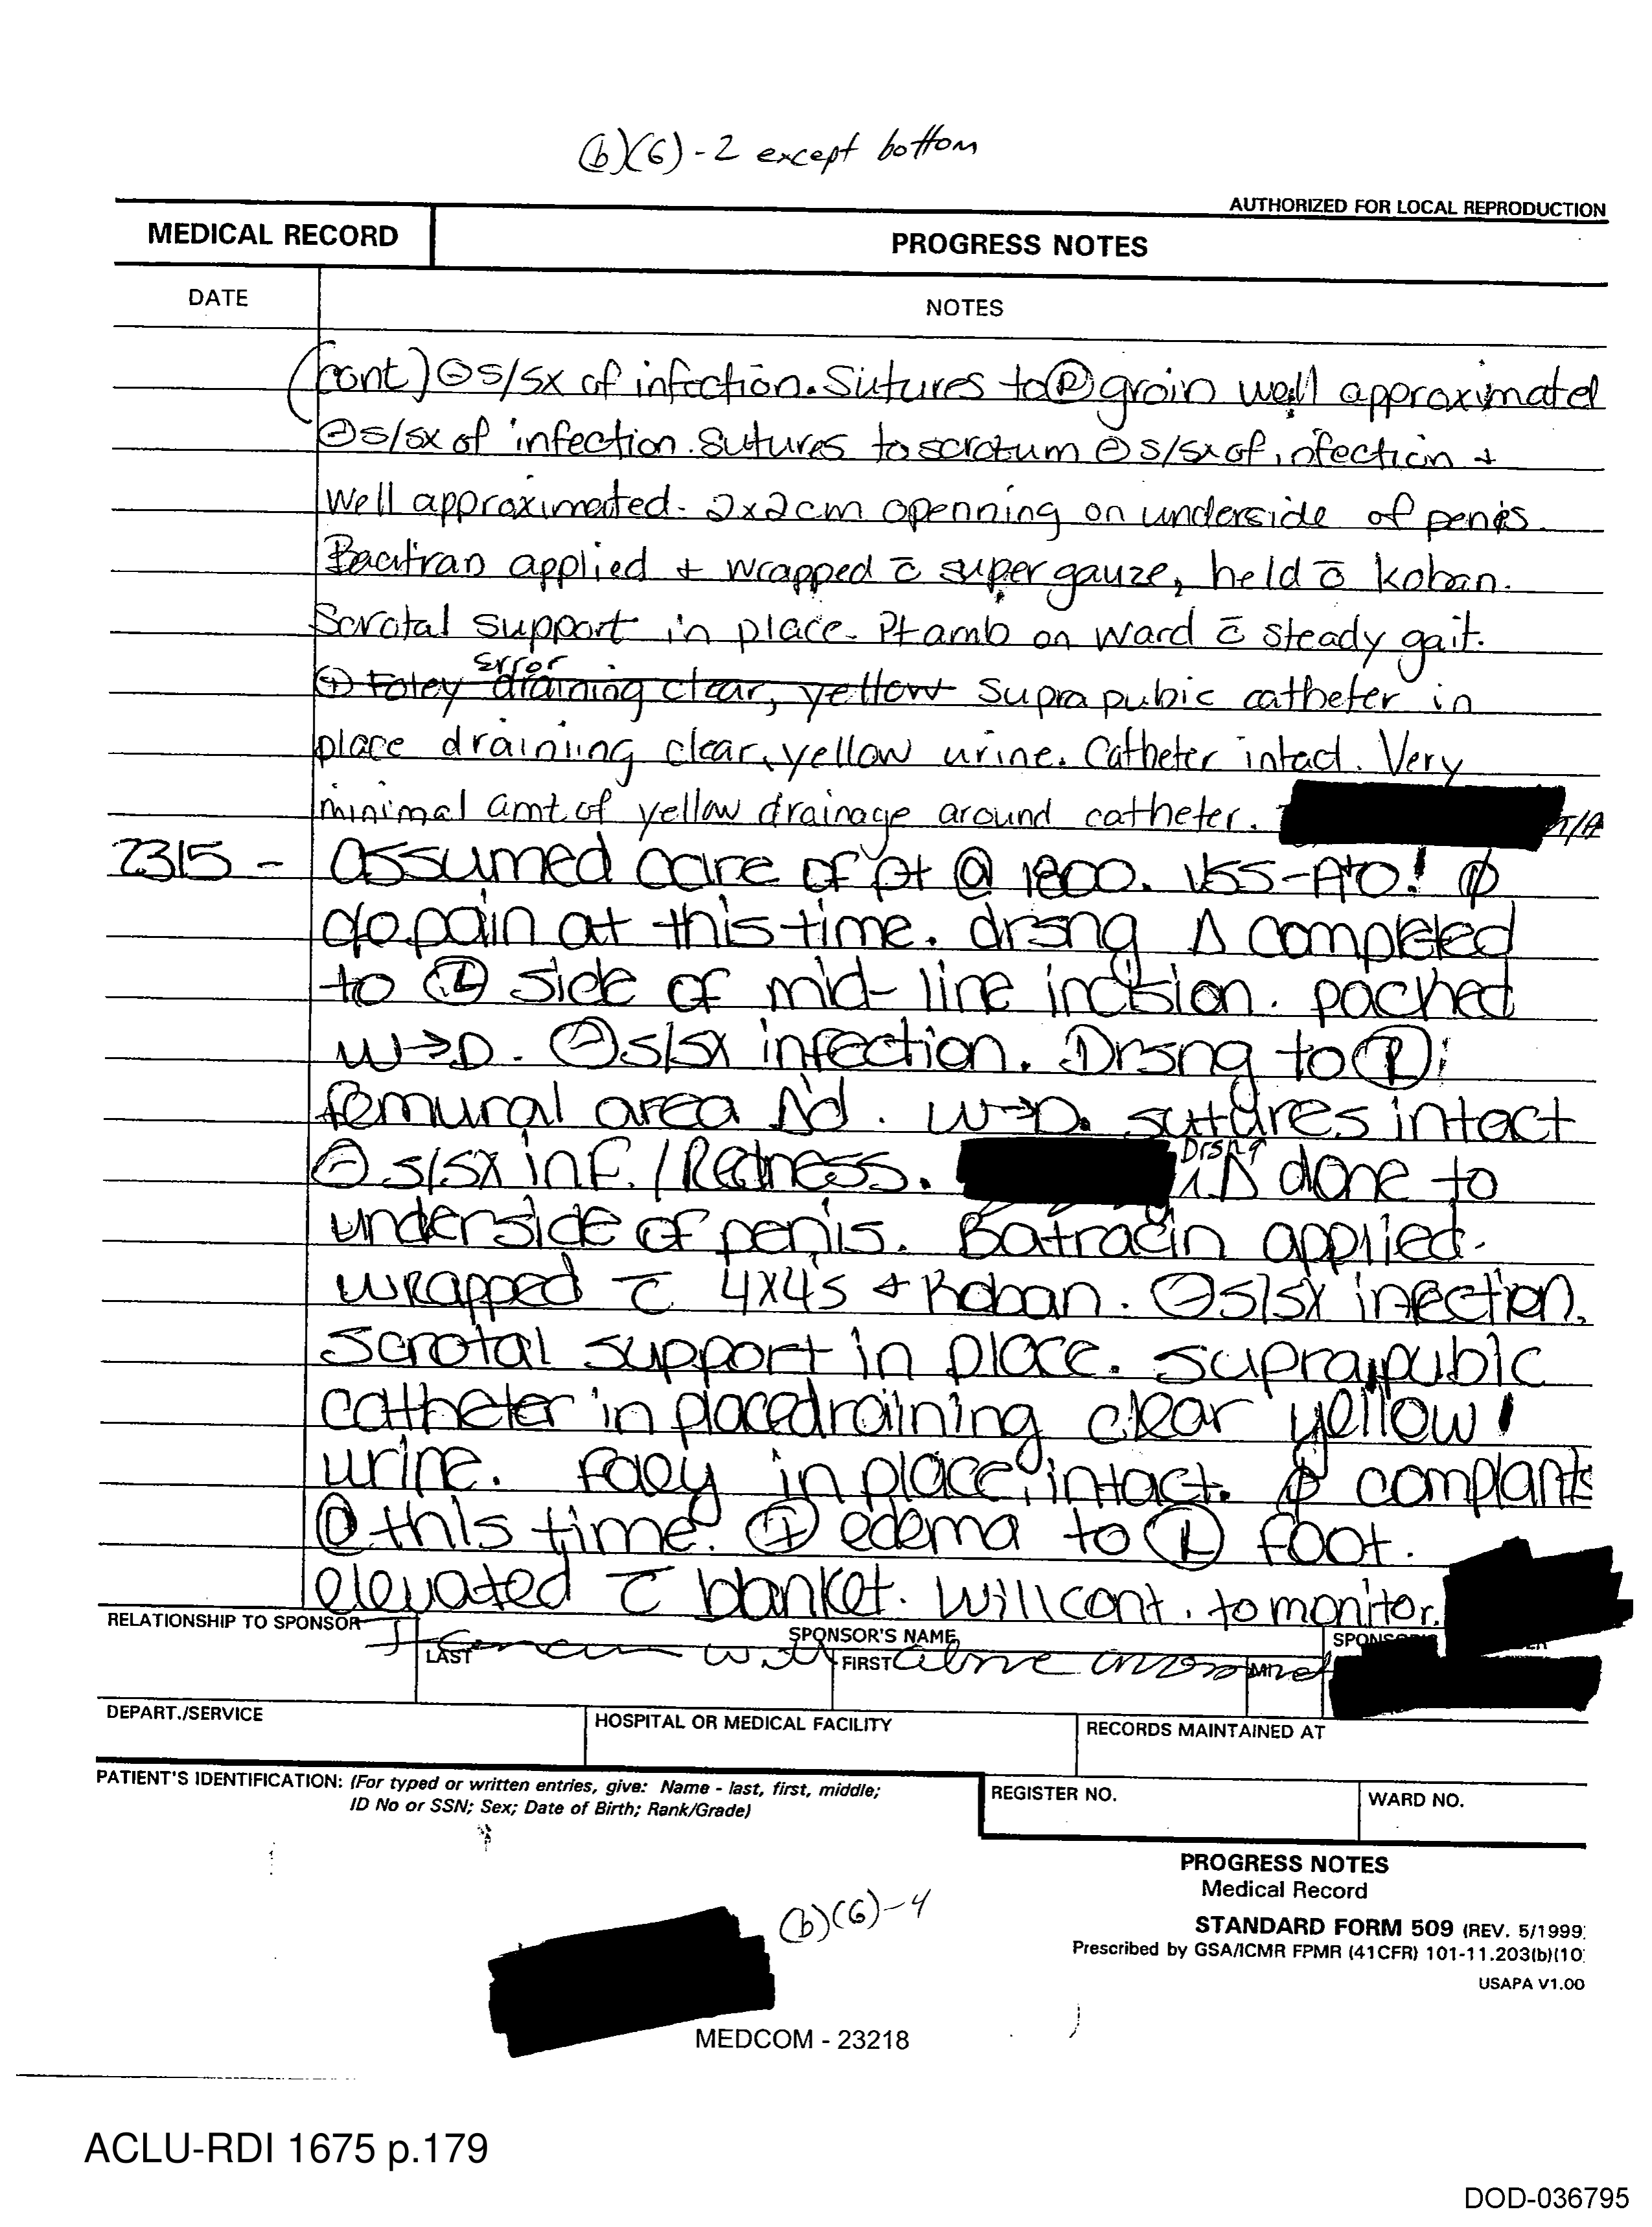 (b)(6)-2 except bottom
AUTHORIZED FOR LOCAL REPRODUCTION
MEDICAL RECORD
PROGRESS NOTES
DATE
NOTES
(cont) ⊖ s/sx of infection. Sutures to Ⓡ groin well approximated
⊖ s/sx of infection. Sutures to scrotum ⊖ s/sx of infection +
well approximated. 2x2cm openning on underside of penis.
applied + wrapped c̄ super gauze, held c̄ koban.
Scrotal support in place. Pt amb on ward c̄ steady gait.
Error
⊕ Foley draining clear, yellow Suprapubic catheter in
place draining clear, yellow urine. Catheter intact. Very
minimal amt of yellow drainage around catheter.
2315 - assumed care of pt @ 1800. VSS-A+O! ϕ
c/o pain at this time. drsng Δ completed
to Ⓛ side of mid-line incision. packed
W→D. ⊖ s/sx infection. Drsng to
femural area Δ'd. W→D. sutures intact
⊖ s/sx inf./Redness. Drsng Δ done to
underside of penis. Batracin applied.
wrapped c̄ 4x4's + Koban. ⊖ s/sx infection.
Scrotal support in place. suprapubic
catheter in place draining clear yellow
urine. Foley in place, intact. ϕ complants
@ this time. ⊕ edema to Ⓛ foot.
elevated c̄ blanket. Will cont. to monitor.
RELATIONSHIP TO SPONSOR
SPONSOR'S NAME
LAST
FIRST
MI
above
DEPART./SERVICE
HOSPITAL OR MEDICAL FACILITY
RECORDS MAINTAINED AT
PATIENT'S IDENTIFICATION: (For typed or written entries, give: Name - last, first, middle;
ID No or SSN; Sex; Date of Birth; Rank/Grade)
REGISTER NO.
WARD NO.
PROGRESS NOTES
Medical Record
STANDARD FORM 509 (REV. 5/1999
Prescribed by GSA/ICMR FPMR (41CFR) 101-11.203(b)(10
USAPA V1.00
(b)(6)-4
MEDCOM - 23218
ACLU-RDI 1675 p.179
DOD-036795